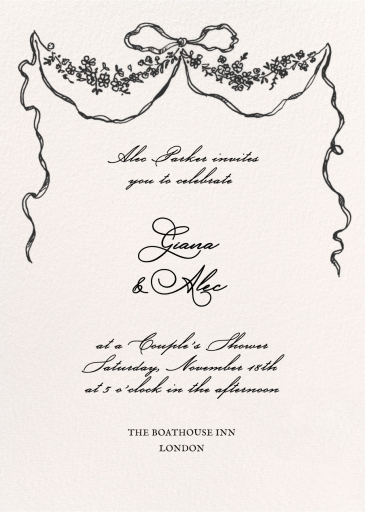 Alec Parker invites
you to celebrate
Giana
& Alec
at a Couple's Shower
Saturday, November 18th
at 5 o'clock in the afternoon
THE BOATHOUSE INN
LONDON